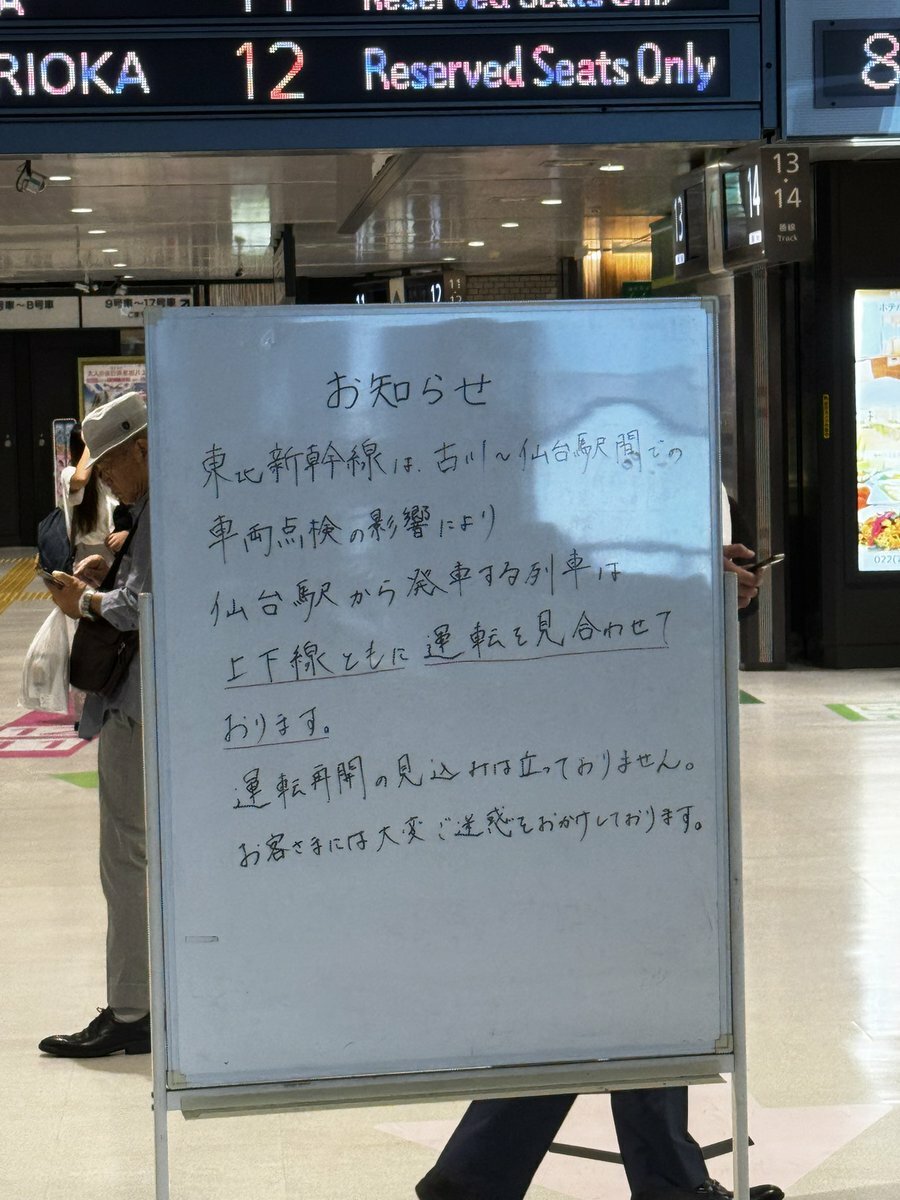 Reserved Seats Only
RIOKA 12 Reserved Seats Only 8
13・14
番線
Track
13
14
11 12
9号車〜17号車
号車〜8号車
お知らせ
東北新幹線は、古川〜仙台駅間での
車両点検の影響により
仙台駅から発車する列車は
上下線ともに運転を見合わせて
おります。
運転再開の見込みは立っておりません。
お客さまには大変ご迷惑をおかけしております。
ホテ
022(